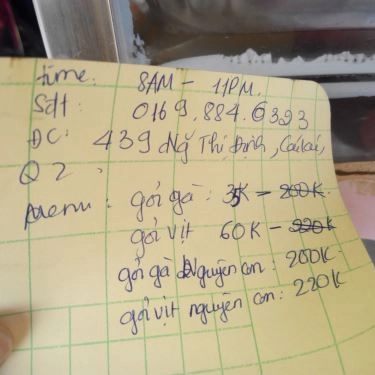 time: 8AM - 11PM.
Sdt: 0169.884.6323
ĐC: 439 Ng Thị Định, Cát Lái,
Q2.
Menu: gỏi gà: 35K - 200K
gỏi vịt 60K - 220K
gỏi gà nguyên con: 200K
gỏi vịt nguyên con: 220K